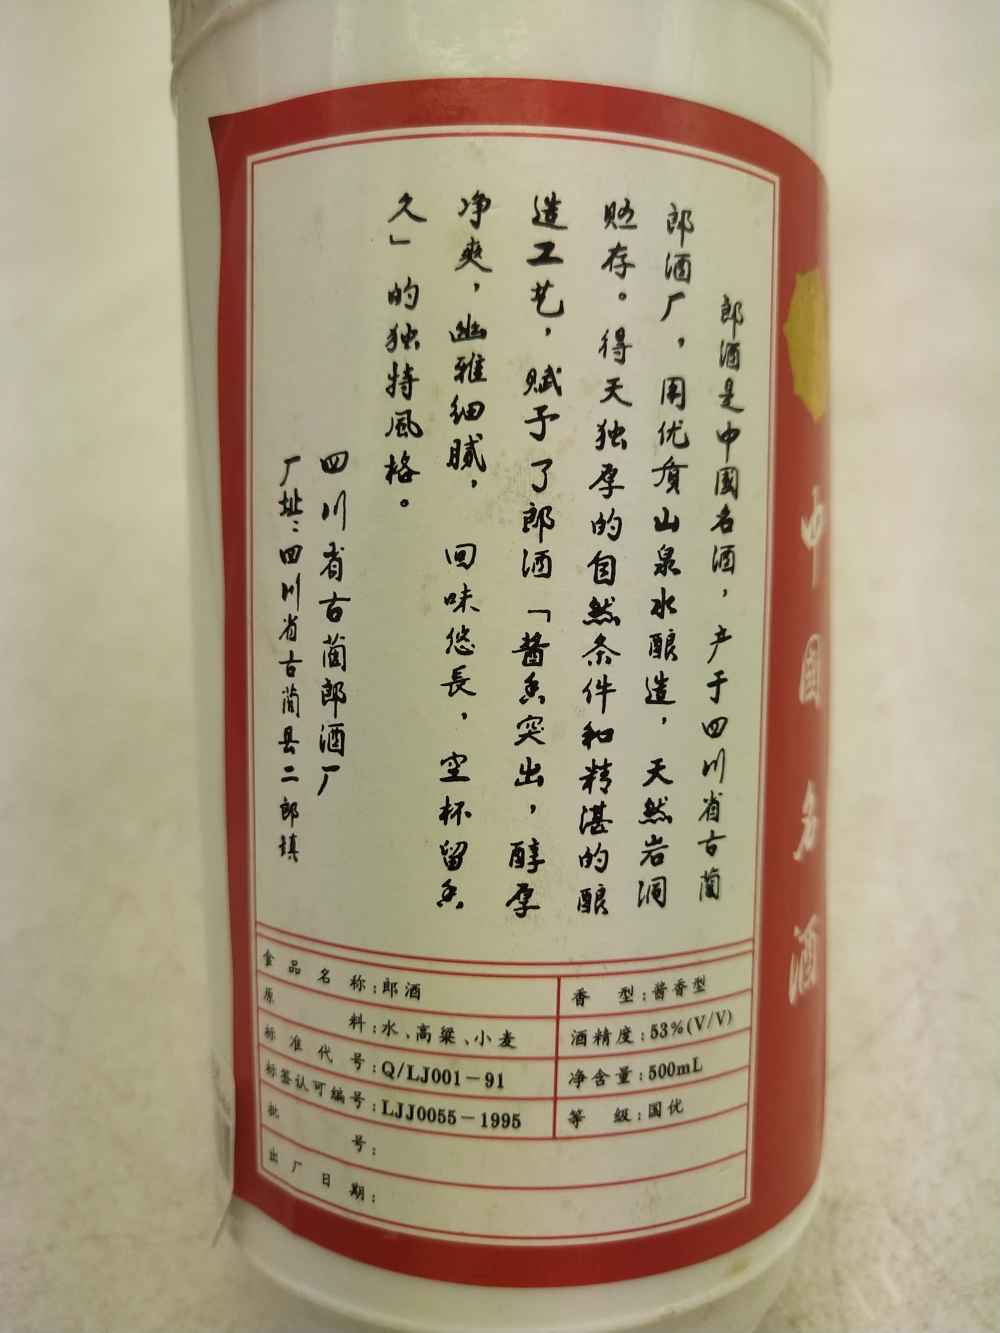 中国名酒
郎酒是中國名酒，产于四川省古蔺
郎酒厂，用优质山泉水酿造，天然岩洞
贮存。得天独厚的自然条件和精湛的酿
造工艺，赋予了郎酒「酱香突出，醇厚
净爽，幽雅细腻，回味悠長，空杯留香
久」的独特風格。
四川省古蔺郎酒厂
厂址：四川省古蔺县二郎镇
食品名称：郎酒
香型：酱香型
原料：水、高粱、小麦
酒精度：53%(V/V)
标准代号：Q/LJ001－91
净含量：500mL
标签认可编号：LJJ0055－1995
等级：国优
批号：
出厂日期：